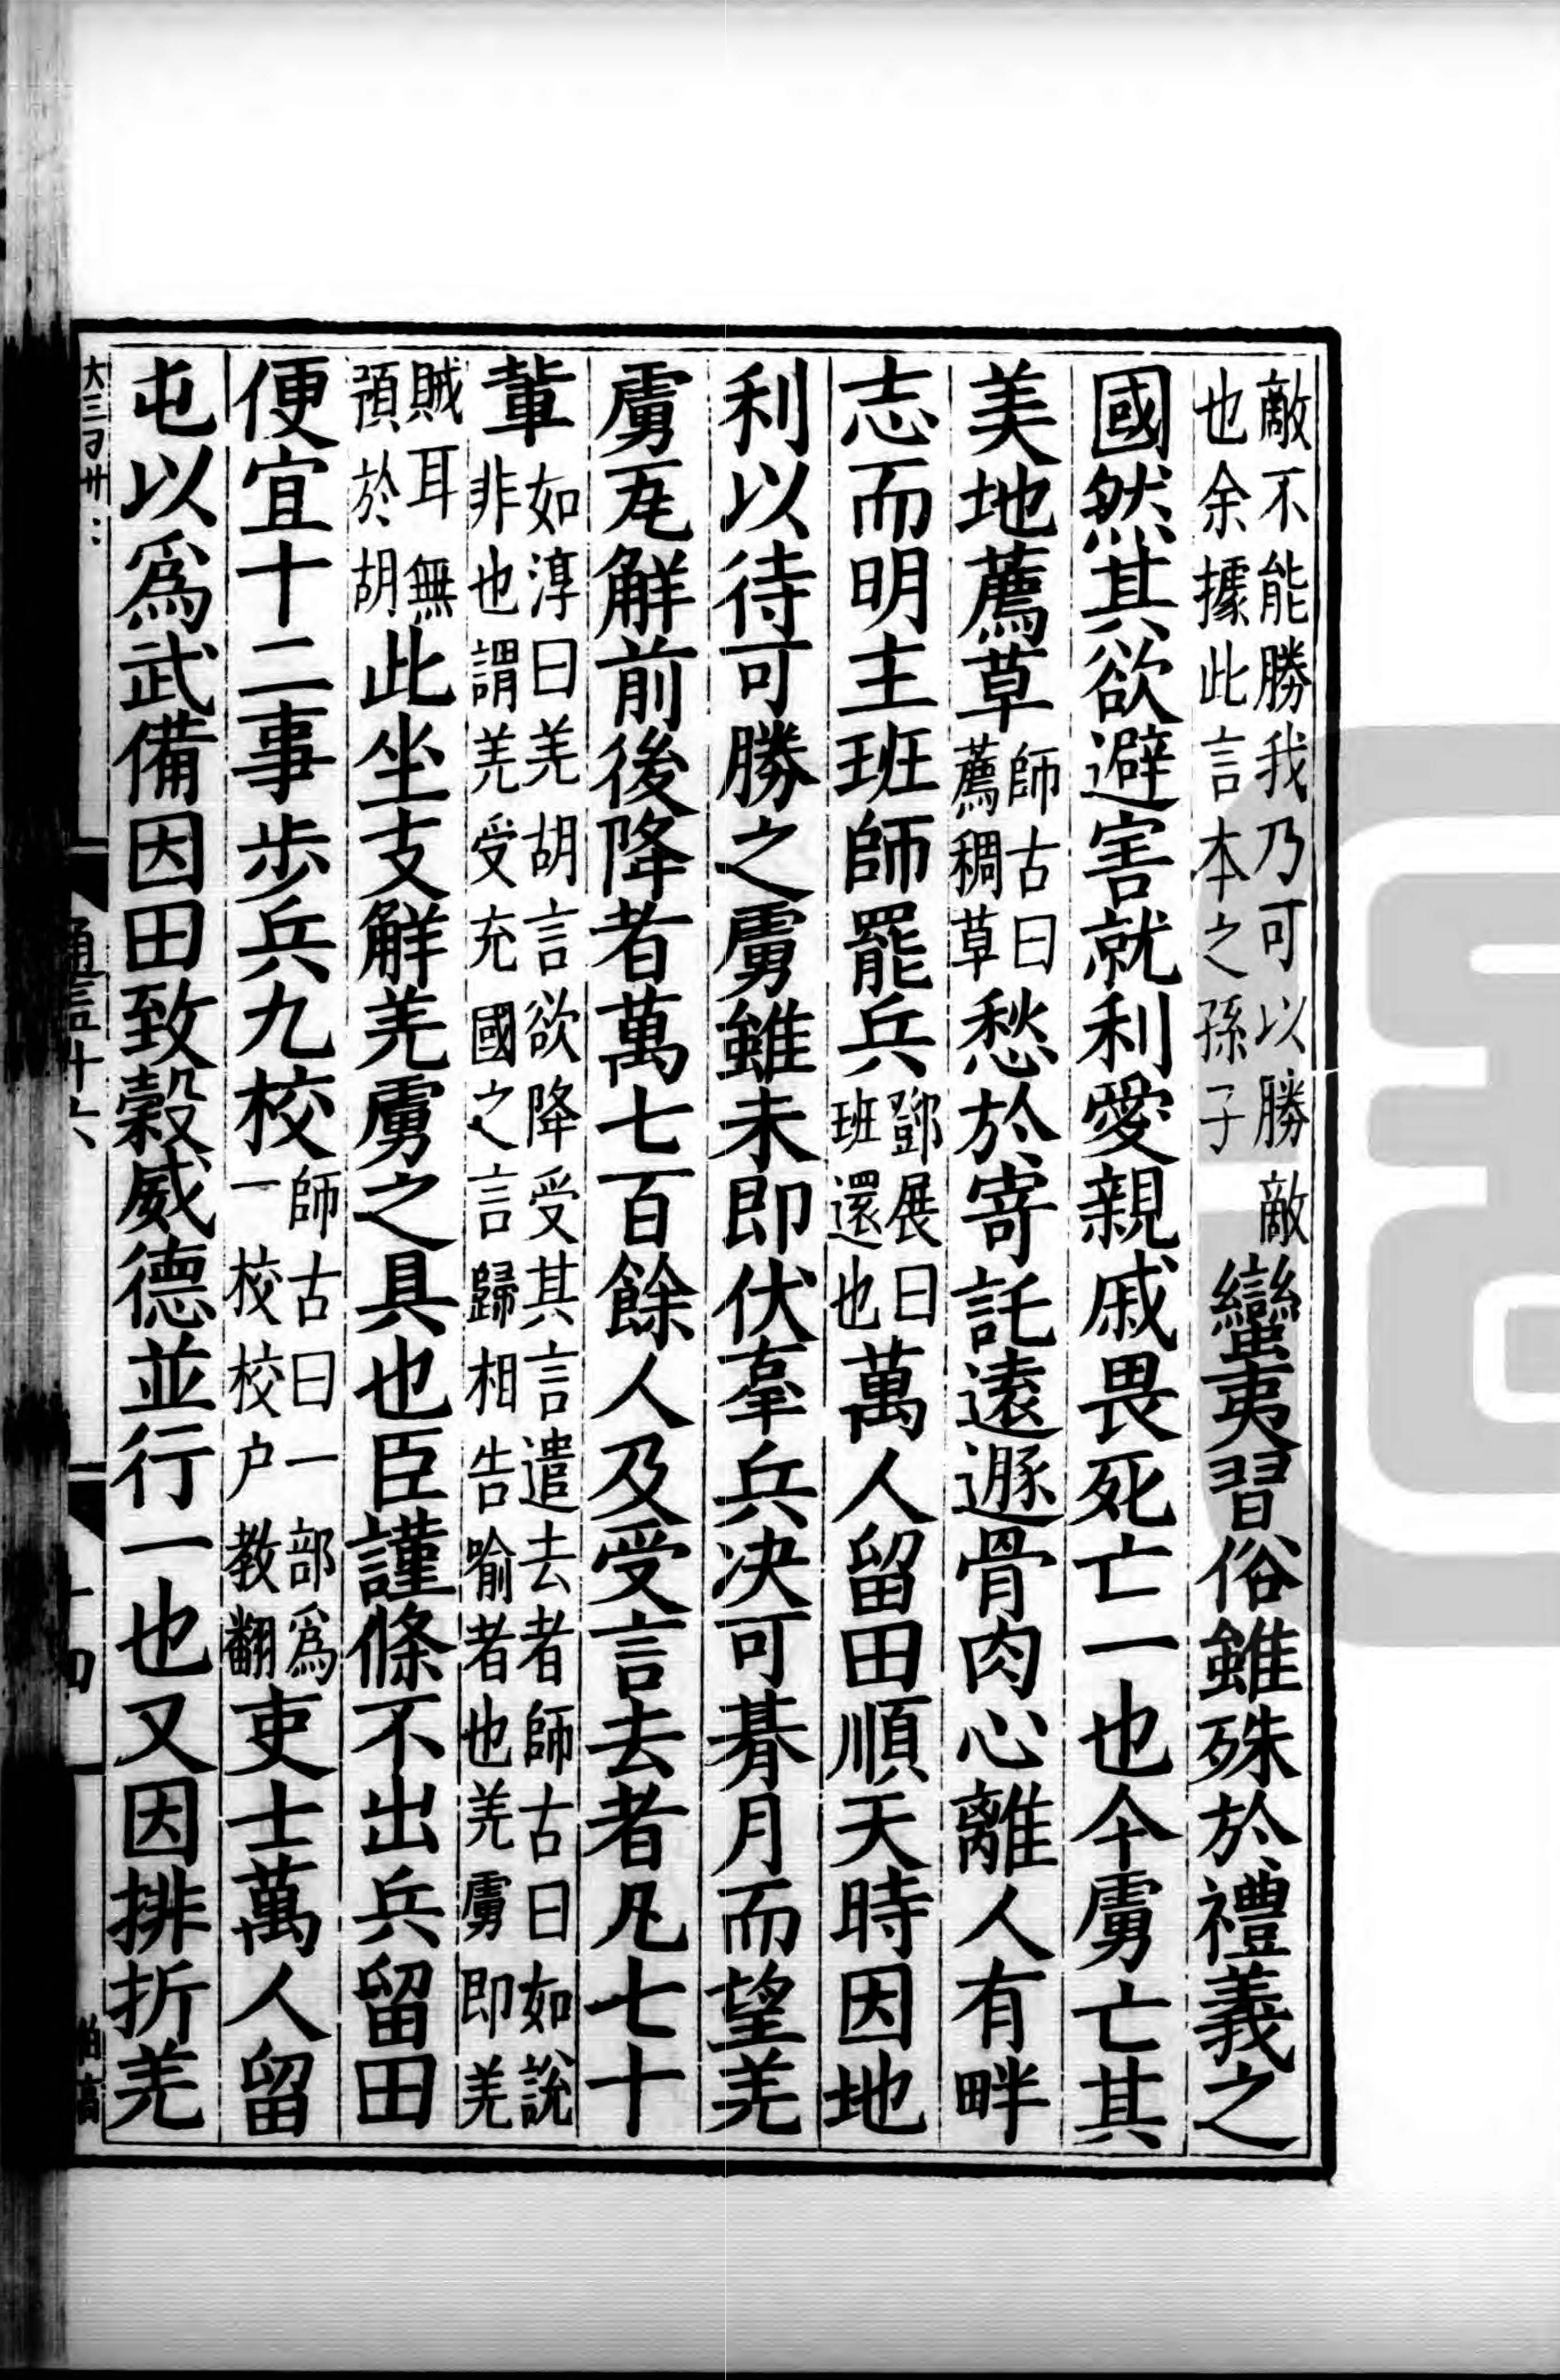 敵不能勝我乃可以勝敵
也余據此言本之孫子
蠻夷習俗雖殊於禮義之
國然其欲避害就利愛親戚畏死亡一也今虜亡其
美地薦草
師古曰
薦稠草
愁於寄託遠遯骨肉心離人有畔
志而明主班師罷兵
鄧展曰
班還也
萬人留田順天時因地
利以待可勝之虜雖未即伏辜兵決可朞月而望羌
虜瓦解前後降者萬七百餘人及受言去者凡七十
輩
如淳曰羌胡言欲降受其言遣去者師古曰如說
非也謂羌受充國之言歸相告喻者也羌虜即羌
賊耳無
預於胡
此坐支解羌虜之具也臣謹條不出兵留田
便宜十二事步兵九校
師古曰一部爲
一校校户教翻
吏士萬人留
屯以爲武備因田致穀威德並行一也又因排折羌
大三百卅
通言十六
十四